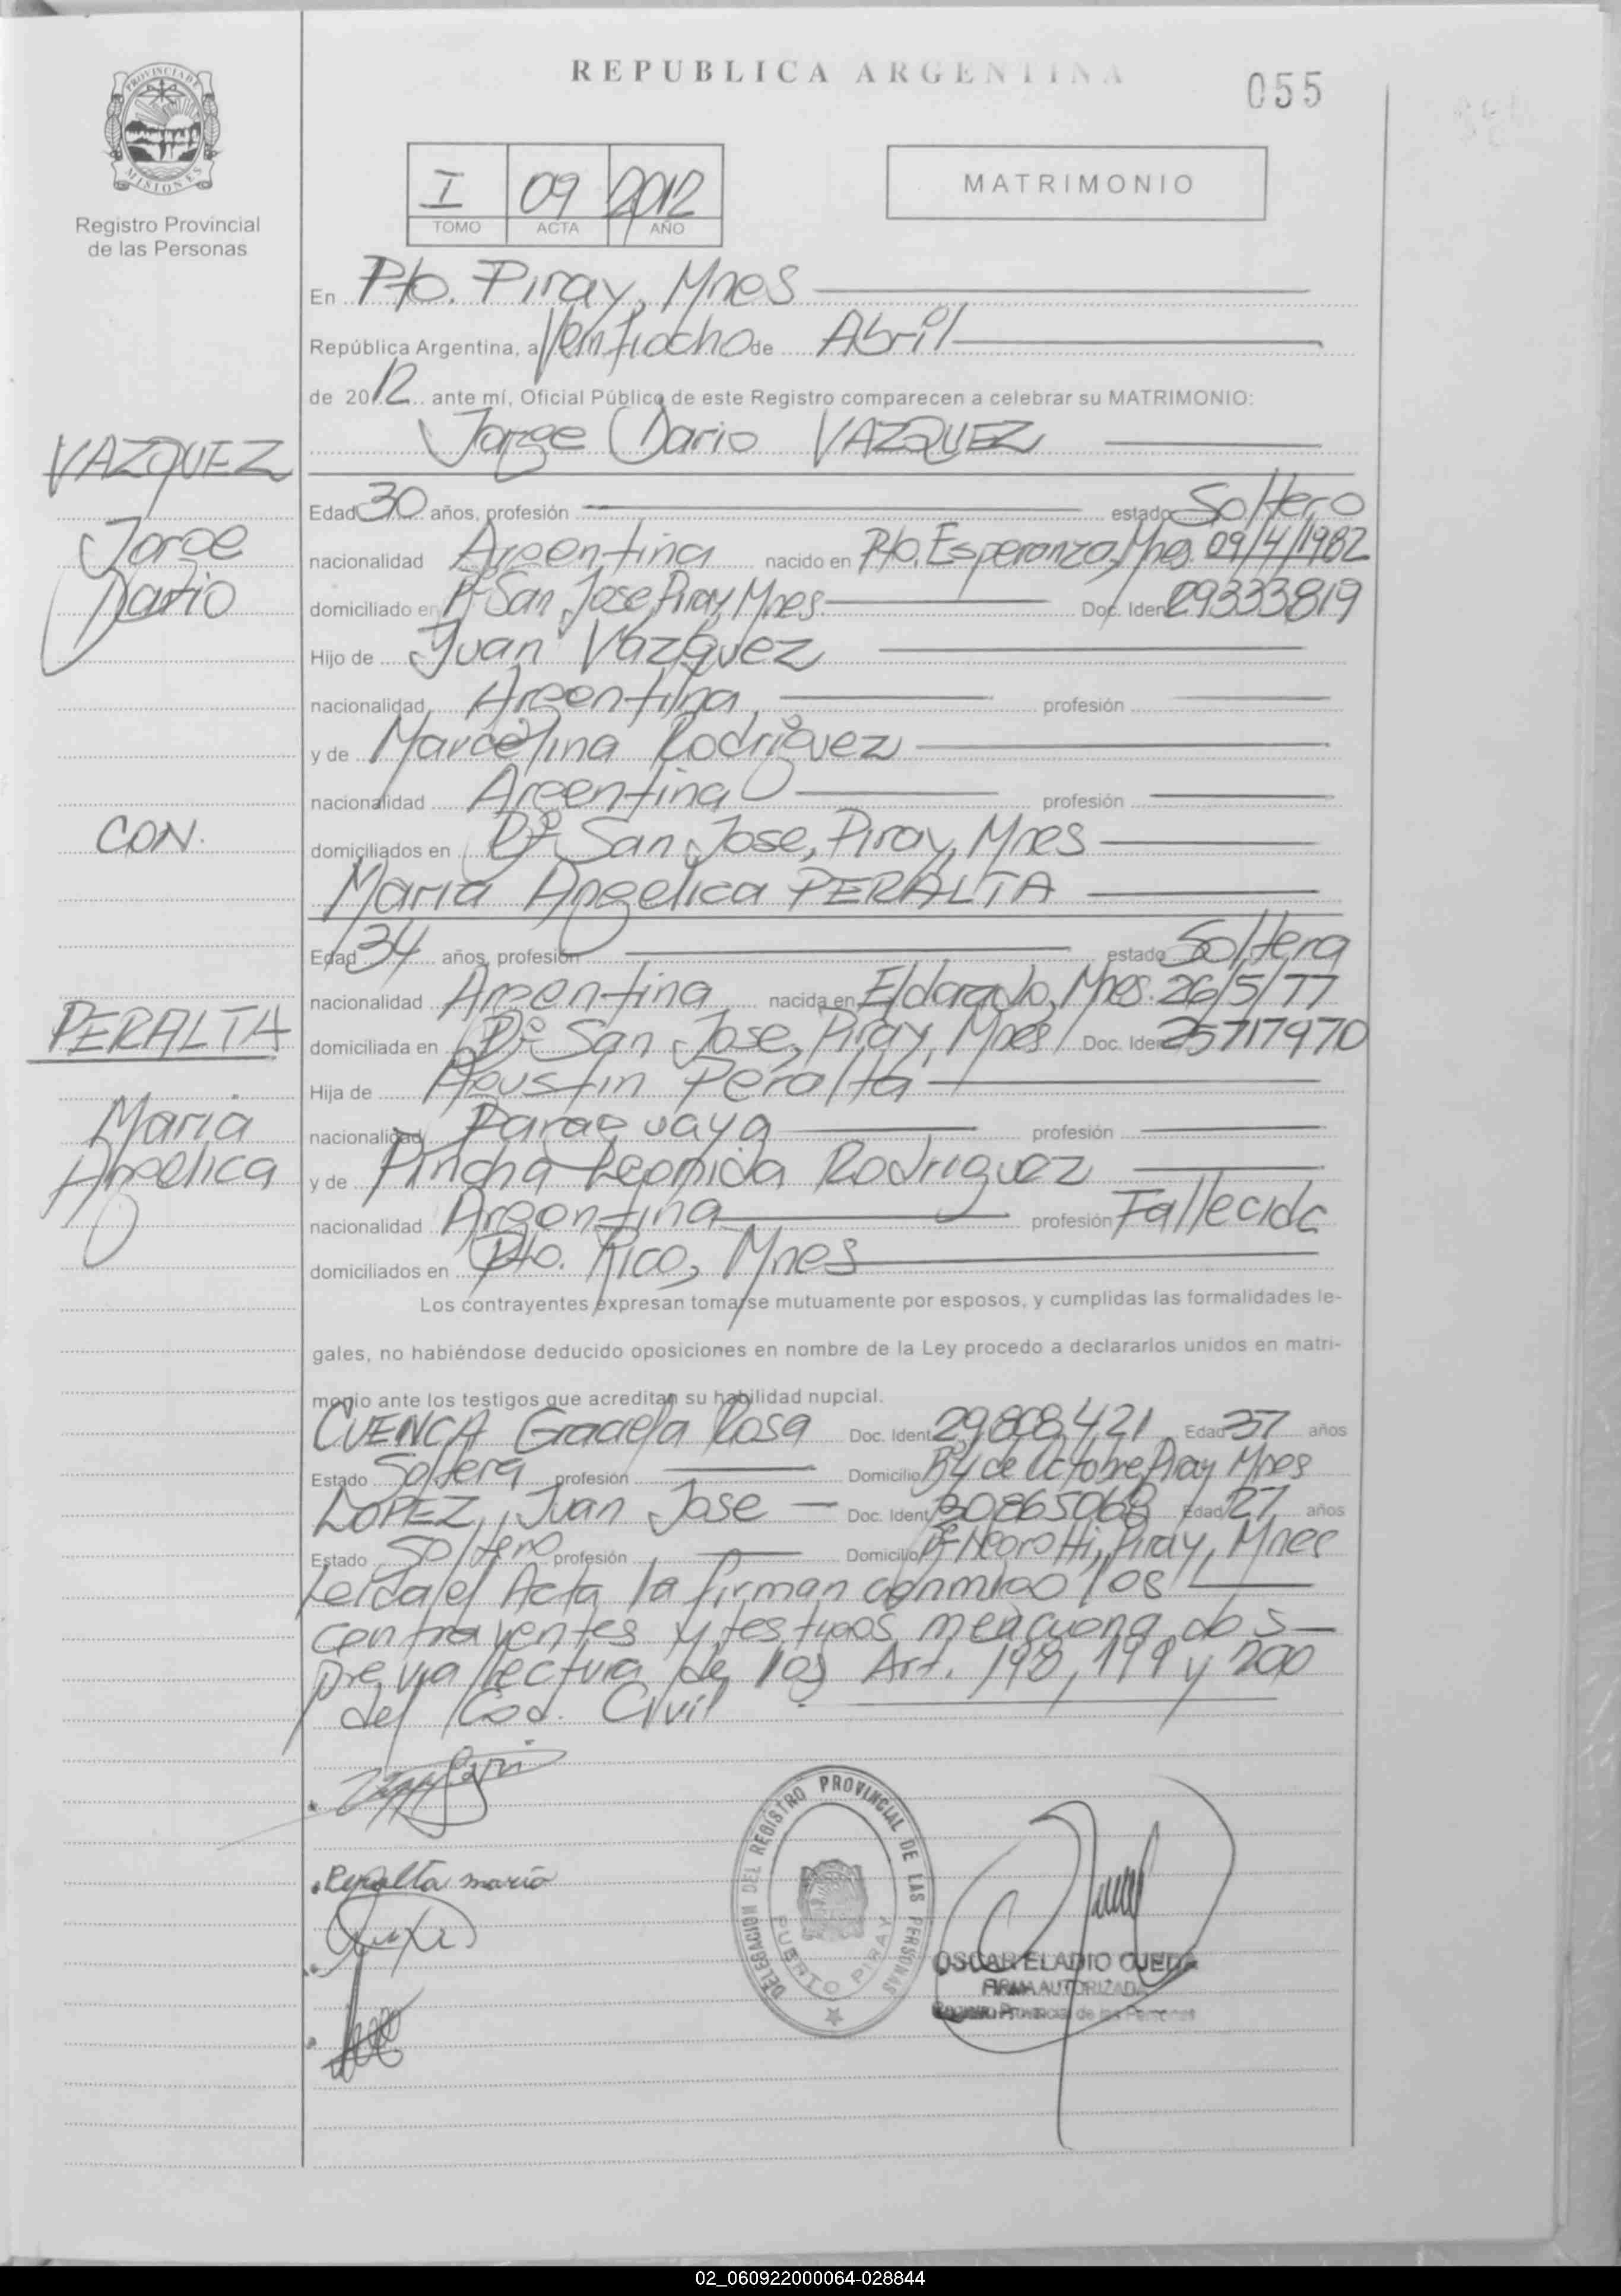 REPUBLICA ARGENTINA
055
PROVINCIA DE
MISIONES
Registro Provincial
de las Personas
I 09 2012
TOMO ACTA AÑO
MATRIMONIO
En Pto. Piray, Mnes
República Argentina, a Veintiocho de Abril
de 2012 ante mí, Oficial Público de este Registro comparecen a celebrar su MATRIMONIO:
Jorge Dario VAZQUEZ
VAZQUEZ
Jorge
Dario
CON.
PERALTA
Maria
Angelica
Edad 30 años, profesión estado Soltero
nacionalidad Argentina nacido en Pto. Esperanza, Mnes. 09/4/1982
domiciliado en Bº San Jose, Piray, Mnes. Doc. Iden 29333819
Hijo de Juan Vazquez
nacionalidad Argentina profesión
y de Marcelina Rodriguez
nacionalidad Argentina profesión
domiciliados en Bº San Jose, Piray, Mnes
Maria Angelica PERALTA
Edad 34 años, profesión estado Soltera
nacionalidad Argentina nacida en Eldorado, Mnes. 26/5/77
domiciliada en Bº San Jose, Piray, Mnes Doc. Iden 25717970
Hija de Agustin Peralta
nacionalidad Paraguaya profesión
y de Pincha Leonida Rodriguez
nacionalidad Argentina profesión Fallecida
domiciliados en Pto. Rico, Mnes
Los contrayentes expresan tomarse mutuamente por esposos, y cumplidas las formalidades le-
gales, no habiéndose deducido oposiciones en nombre de la Ley procedo a declararlos unidos en matri-
monio ante los testigos que acreditan su habilidad nupcial.
CUENCA Graciela Rosa Doc. Ident 29.808.421 Edad 37 años
Estado Soltera profesión Domicilio Bº 4 de Octobre, Piray Mnes
LOPEZ, Juan Jose Doc. Ident 30865068 Edad 27 años
Estado Soltero profesión Domicilio Bº Negrotti, Piray, Mnes
Leida el Acta la firman conmigo los
contrayentes y testigos mencionados
previa lectura de los Art. 198, 199 y 200
del Cod. Civil
Peralta maria
DELEGACION DEL REGISTRO PROVINCIAL DE LAS PERSONAS
PUERTO PIRAY
OSCAR ELADIO OJEDA
FIRMA AUTORIZADA
Registro Provincial de las Personas
02_060922000064-028844